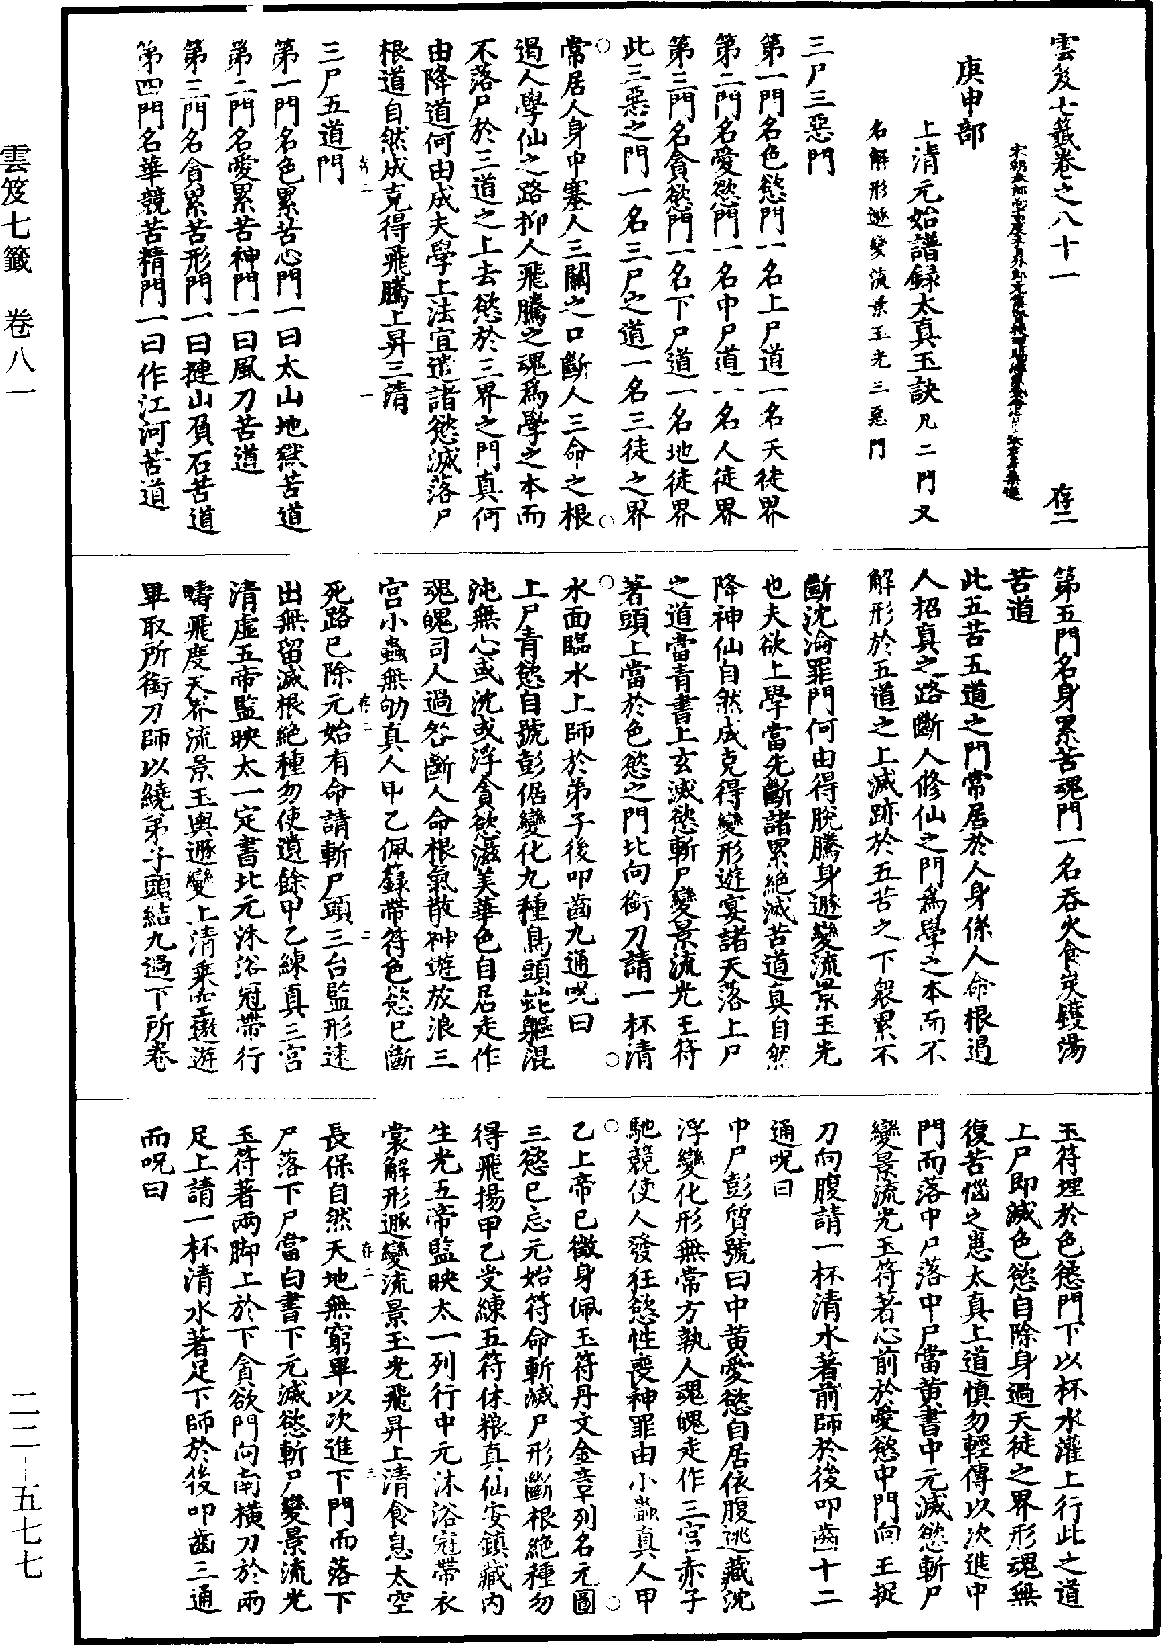 雲笈七籤卷之八十一 存二
庚申部
上清元始譜録太真玉訣凡二門又
名解形遯變流景玉光三惡門
三尸三惡門
第一門名色慾門一名上尸道一名天徒界
第二門名愛慾門一名中尸道一名人徒界
第三門名貪慾門一名下尸道一名地徒界
此三惡之門一名三尸之道一名三徒之界
常居人身中塞人三關之口斷人三命之根
遏人學仙之路抑人飛騰之魂爲學之本而
不落尸於三道之上去慾於三界之門真何
由降道何由成夫學上法宜遣諸慾滅落尸
根道自然成克得飛騰上昇三清
三尸五道門
第一門名色累苦心門一曰太山地獄苦道
第二門名愛累苦神門一曰風刀苦道
第三門名貪累苦形門一曰揵山負石苦道
第四門名華競苦精門一曰作江河苦道
第五門名身累苦魂門一名吞火食炭鑊湯
苦道
此五苦五道之門常居於人身係人命根遏
人招真之路斷人修仙之門爲學之本而不
解形於五道之上滅跡於五苦之下衆累不
斷沈淪罪門何由得脫騰身遯變流景玉光
也夫欲上學當先斷諸累絕滅苦道真自然
降神仙自然成克得變形遊宴諸天落上尸
之道當青書上玄滅慾斬尸變景流光玉符
著頭上當於色慾之門北向銜刀請一杯清
水面臨水上師於弟子後叩齒九通呪曰
上尸青慾自號彭倨變化九種鳥頭蛇軀混
沌無心或沈或浮貪慾滋美華色自居走作
魂魄司人過咎斷人命根氣散神遊放浪三
宮小蟲無劬真人甲乙佩籙帶符色慾已斷
死路已除元始有命請斬尸頭三台監形速
出無留滅根絕種勿使遺餘甲乙練真三宮
清虛五帝監映太一定書北元沐浴冠帶行
疇飛度天界流景玉輿遯變上清乘空遨遊
畢取所銜刀師以繞弟子頭結九過下所卷
玉符埋於色慾門下以杯水灌上行此之道
上尸即滅色慾自除身過天徒之界形魂無
復苦惱之患太真上道慎勿輕傳以次進中
門而落中尸落中尸當黄書中元滅慾斬尸
變景流光玉符著心前於愛慾中門向王捉
刀向腹請一杯清水著前師於後叩齒十二
通呪曰
中尸彭質號曰中黄愛慾自居依腹逃藏沈
浮變化形無常方執人魂魄走作三宮赤子
馳競使人發狂慾性喪神罪由小蟲真人甲
乙上帝已徵身佩玉符丹文金章列名元圖
三慾已忘元始符命斬滅尸形斷根絕種勿
得飛揚甲乙受練五符休糧真仙安鎮藏內
生光五帝監映太一列行中元沐浴冠帶衣
裳解形遯變流景玉光飛昇上清食息太空
長保自然天地無窮畢以次進下門而落下
尸落下尸當白書下元滅慾斬尸變景流光
玉符著兩脚上於下貪欲門向南横刀於兩
足上請一杯清水著足下師於後叩齒三通
而呪曰
雲笈七籤 卷八一
二二－五七七